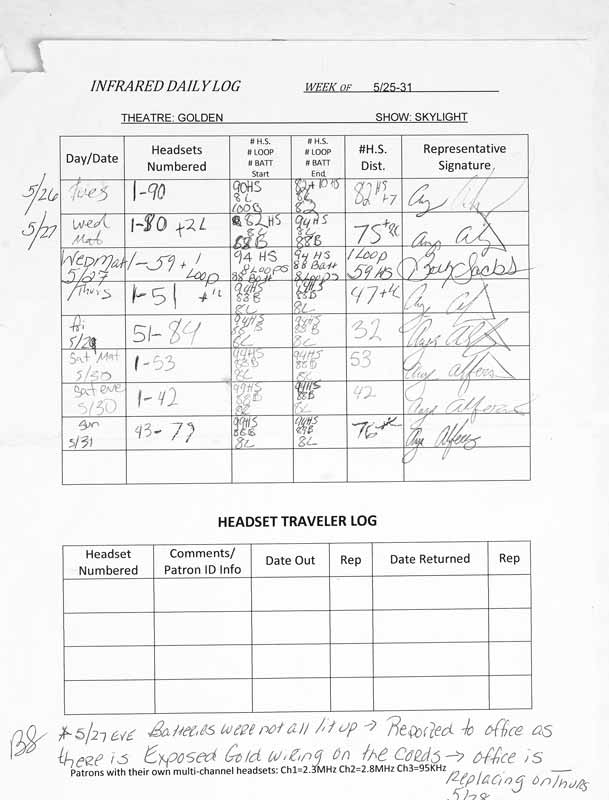 INFRARED DAILY LOG WEEK OF 5/25-31
THEATRE: GOLDEN SHOW: SKYLIGHT
Day/Date Headsets Numbered # H.S. # LOOP # BATT Start # H.S. # LOOP # BATT End #H.S. Dist. Representative Signature
5/26 Tues 1-90 90HS 8L 100B 82+10HS 8L 82 82HS +7
5/27 Wed Mat 1-80 +2L 82HS 8L 88B 94HS 8L 88B 75+2L
Wed Mat 5/27 1-59+1 Loop 94 HS 8 Loops 88 Batt 94 HS 88 Batt 8 Loops 1 Loop 59 HS
Thurs 1-51 94HS 88B 8L 88B 8L 47+
Fri 51-84 94HS 8L 94HS 88B 8L 32
Sat Mat 5/30 1-53 94HS 8L 94HS 88B 8L 53 Alfers
Sat eve 5/30 1-42 88B 8L 94HS 88B 8L 42
Sun 5/31 43-79 88B 8L 94HS 8L
HEADSET TRAVELER LOG
Headset Numbered Comments/ Patron ID Info Date Out Rep Date Returned Rep
* 5/27 EVE Batteries were not all lit up → Reported to office as
there is Exposed Gold wiring on the cords → office is
Patrons with their own multi-channel headsets: Ch1=2.3MHz Ch2=2.8MHz Ch3=95KHz
Replacing on Thurs
5/28